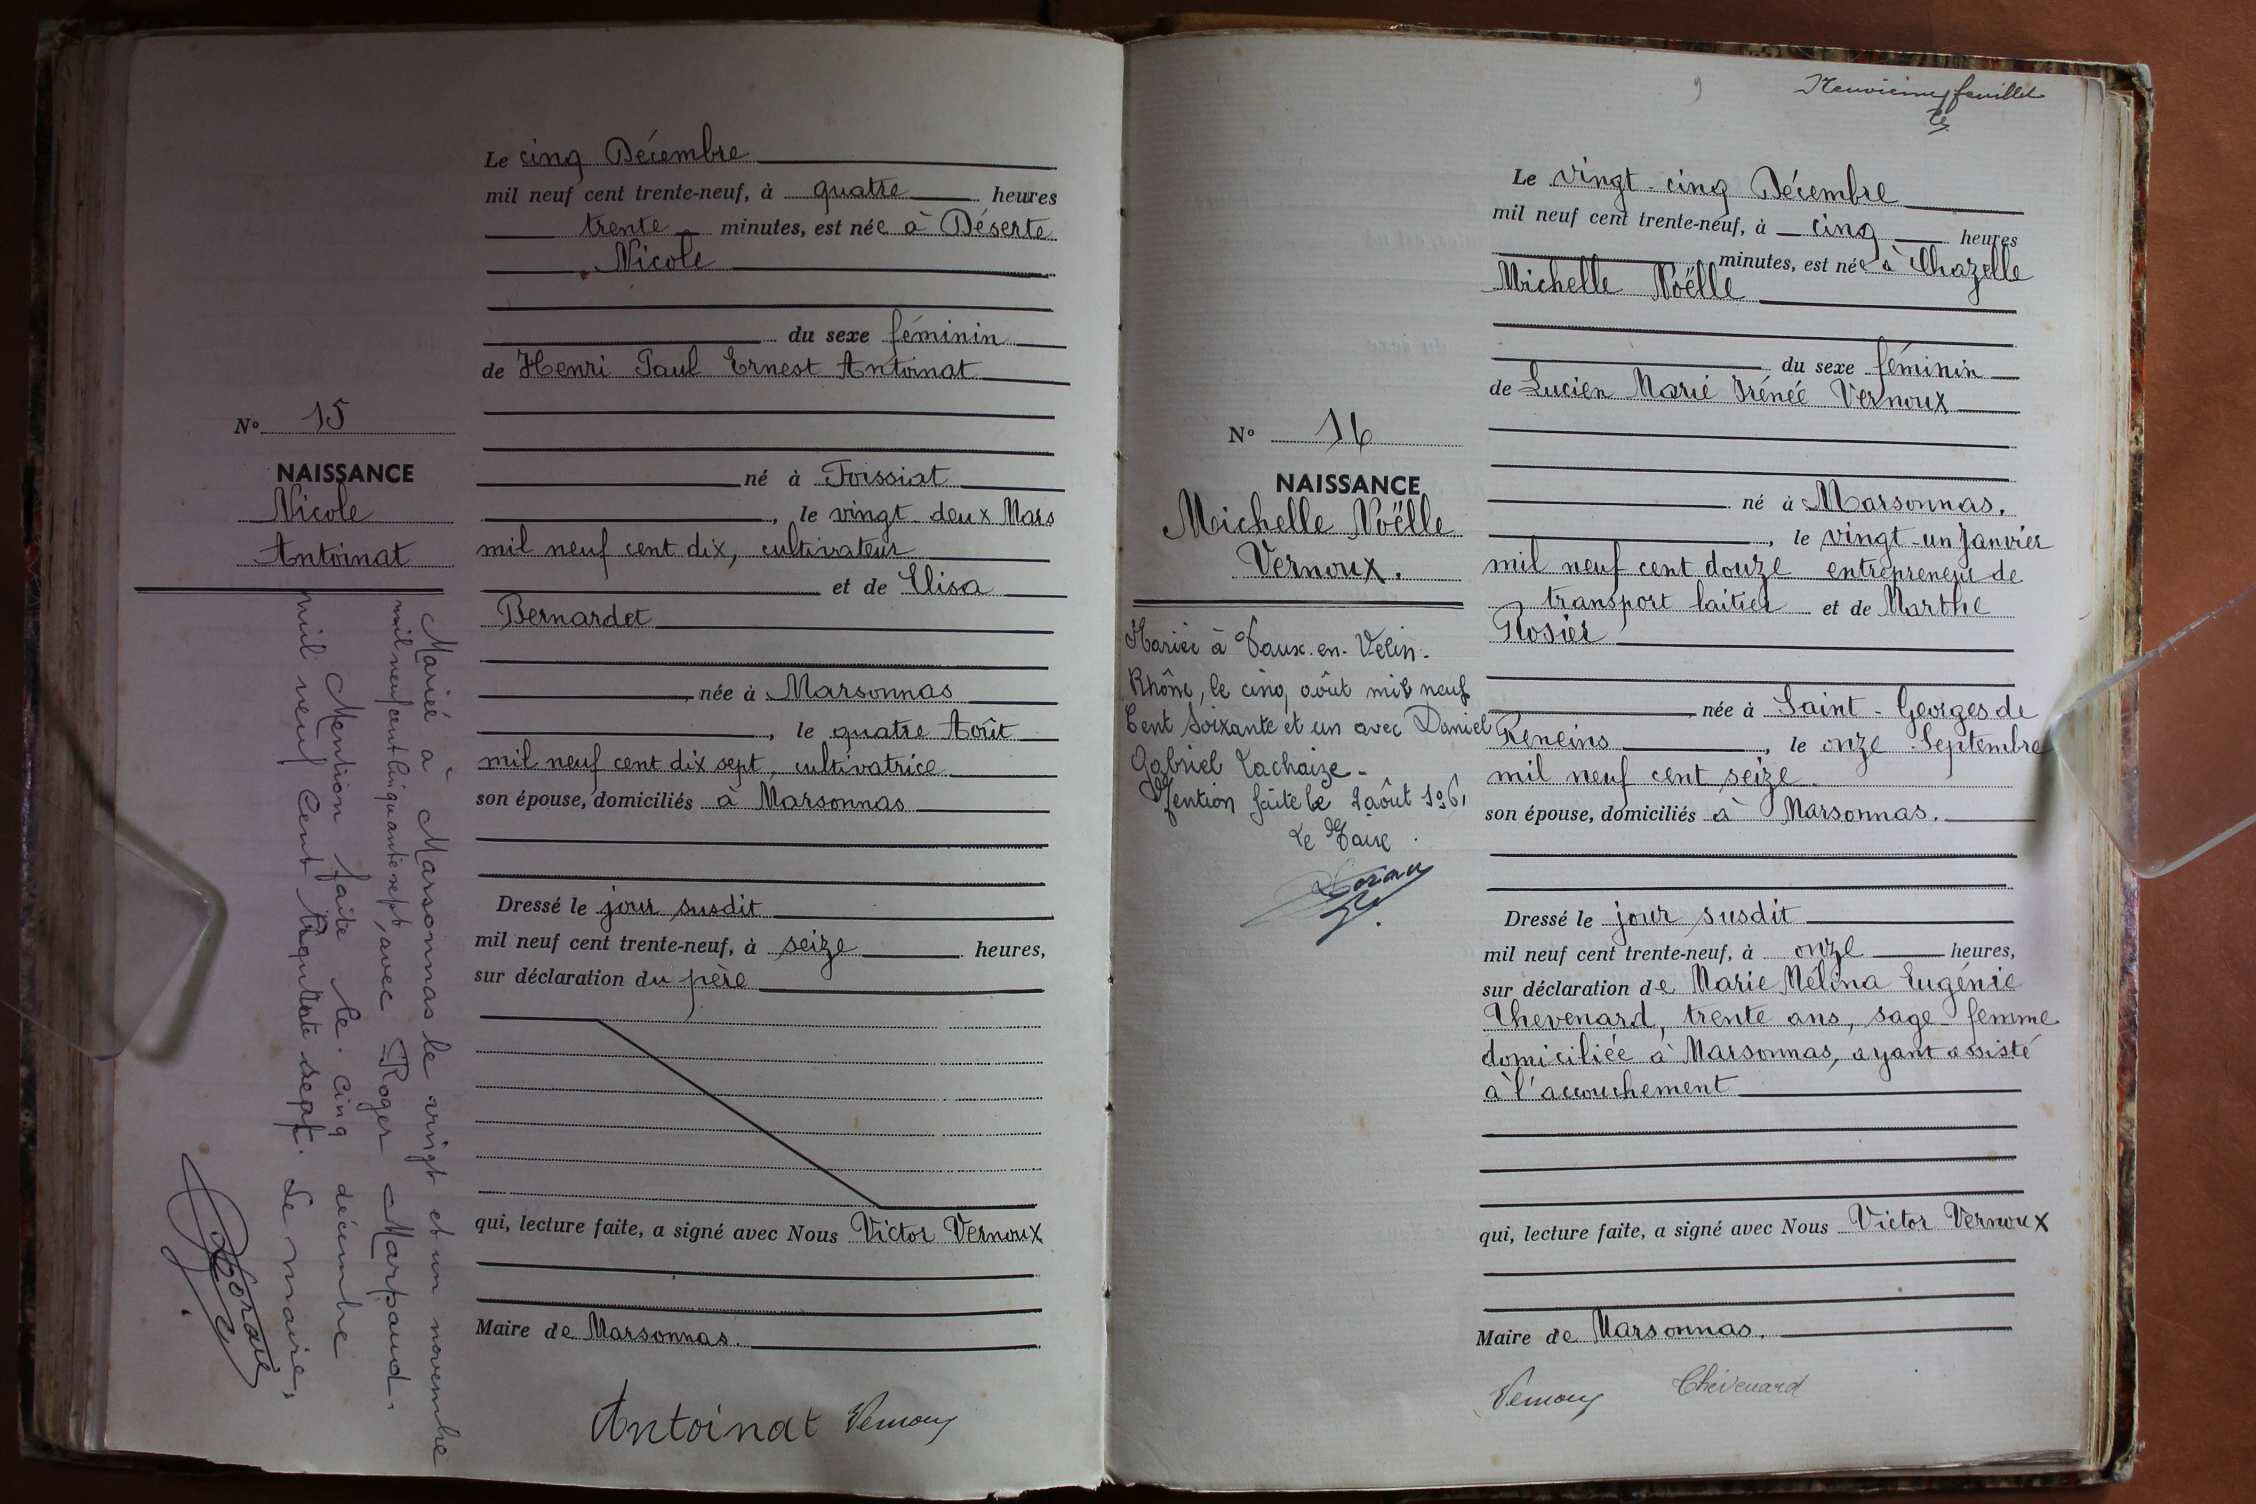 Le cinq Décembre
mil neuf cent trente-neuf, à quatre heures
trente minutes, est née à Déserte
Nicole
du sexe féminin
de Henri Paul Ernest Antoinat
né à Foissiat
, le vingt-deux Mars
mil neuf cent dix, cultivateur
et de Elisa
Bernardet
, née à Marsonnas
, le quatre Août
mil neuf cent dix sept, cultivatrice
son épouse, domiciliés à Marsonnas
Dressé le jour susdit
mil neuf cent trente-neuf, à seize heures,
sur déclaration du père
qui, lecture faite, a signé avec Nous Victor Vernoux
Maire de Marsonnas.
Antoinat Vernoux
No 15
NAISSANCE
Nicole
Antoinat
Mariée à Marsonnas le vingt et un novembre
mil neuf cent cinquante sept, avec Roger Marpaud.
Mention faite le cinq décembre
mil neuf cent cinquante sept. Le maire,
Neuvième feuillet
9
Le vingt-cinq Décembre
mil neuf cent trente-neuf, à cinq heures
minutes, est née à Chazelle
Michelle Noëlle
du sexe féminin
de Lucien Marie Irénée Vernoux
né à Marsonnas.
, le vingt-un Janvier
mil neuf cent douze entrepreneur de
transport laitier et de Marthe
Rosier
, née à Saint-Georges de
Reneins, le onze Septembre
mil neuf cent seize
son épouse, domiciliés à Marsonnas.
Dressé le jour susdit
mil neuf cent trente-neuf, à onze heures,
sur déclaration de Marie Mélina Eugénie
Thevenard, trente ans, sage-femme
domiciliée à Marsonnas, ayant assisté
à l'accouchement
qui, lecture faite, a signé avec Nous Victor Vernoux
Maire de Marsonnas.
Vernoux Thévenard
No 16
NAISSANCE
Michelle Noëlle
Vernoux.
Mariée à Vaux-en-Velin-
Rhône, le cinq août mil neuf
Cent Soixante et un avec Daniel
Gabriel Lachaize-
Mention faite le août 1961
Le Maire